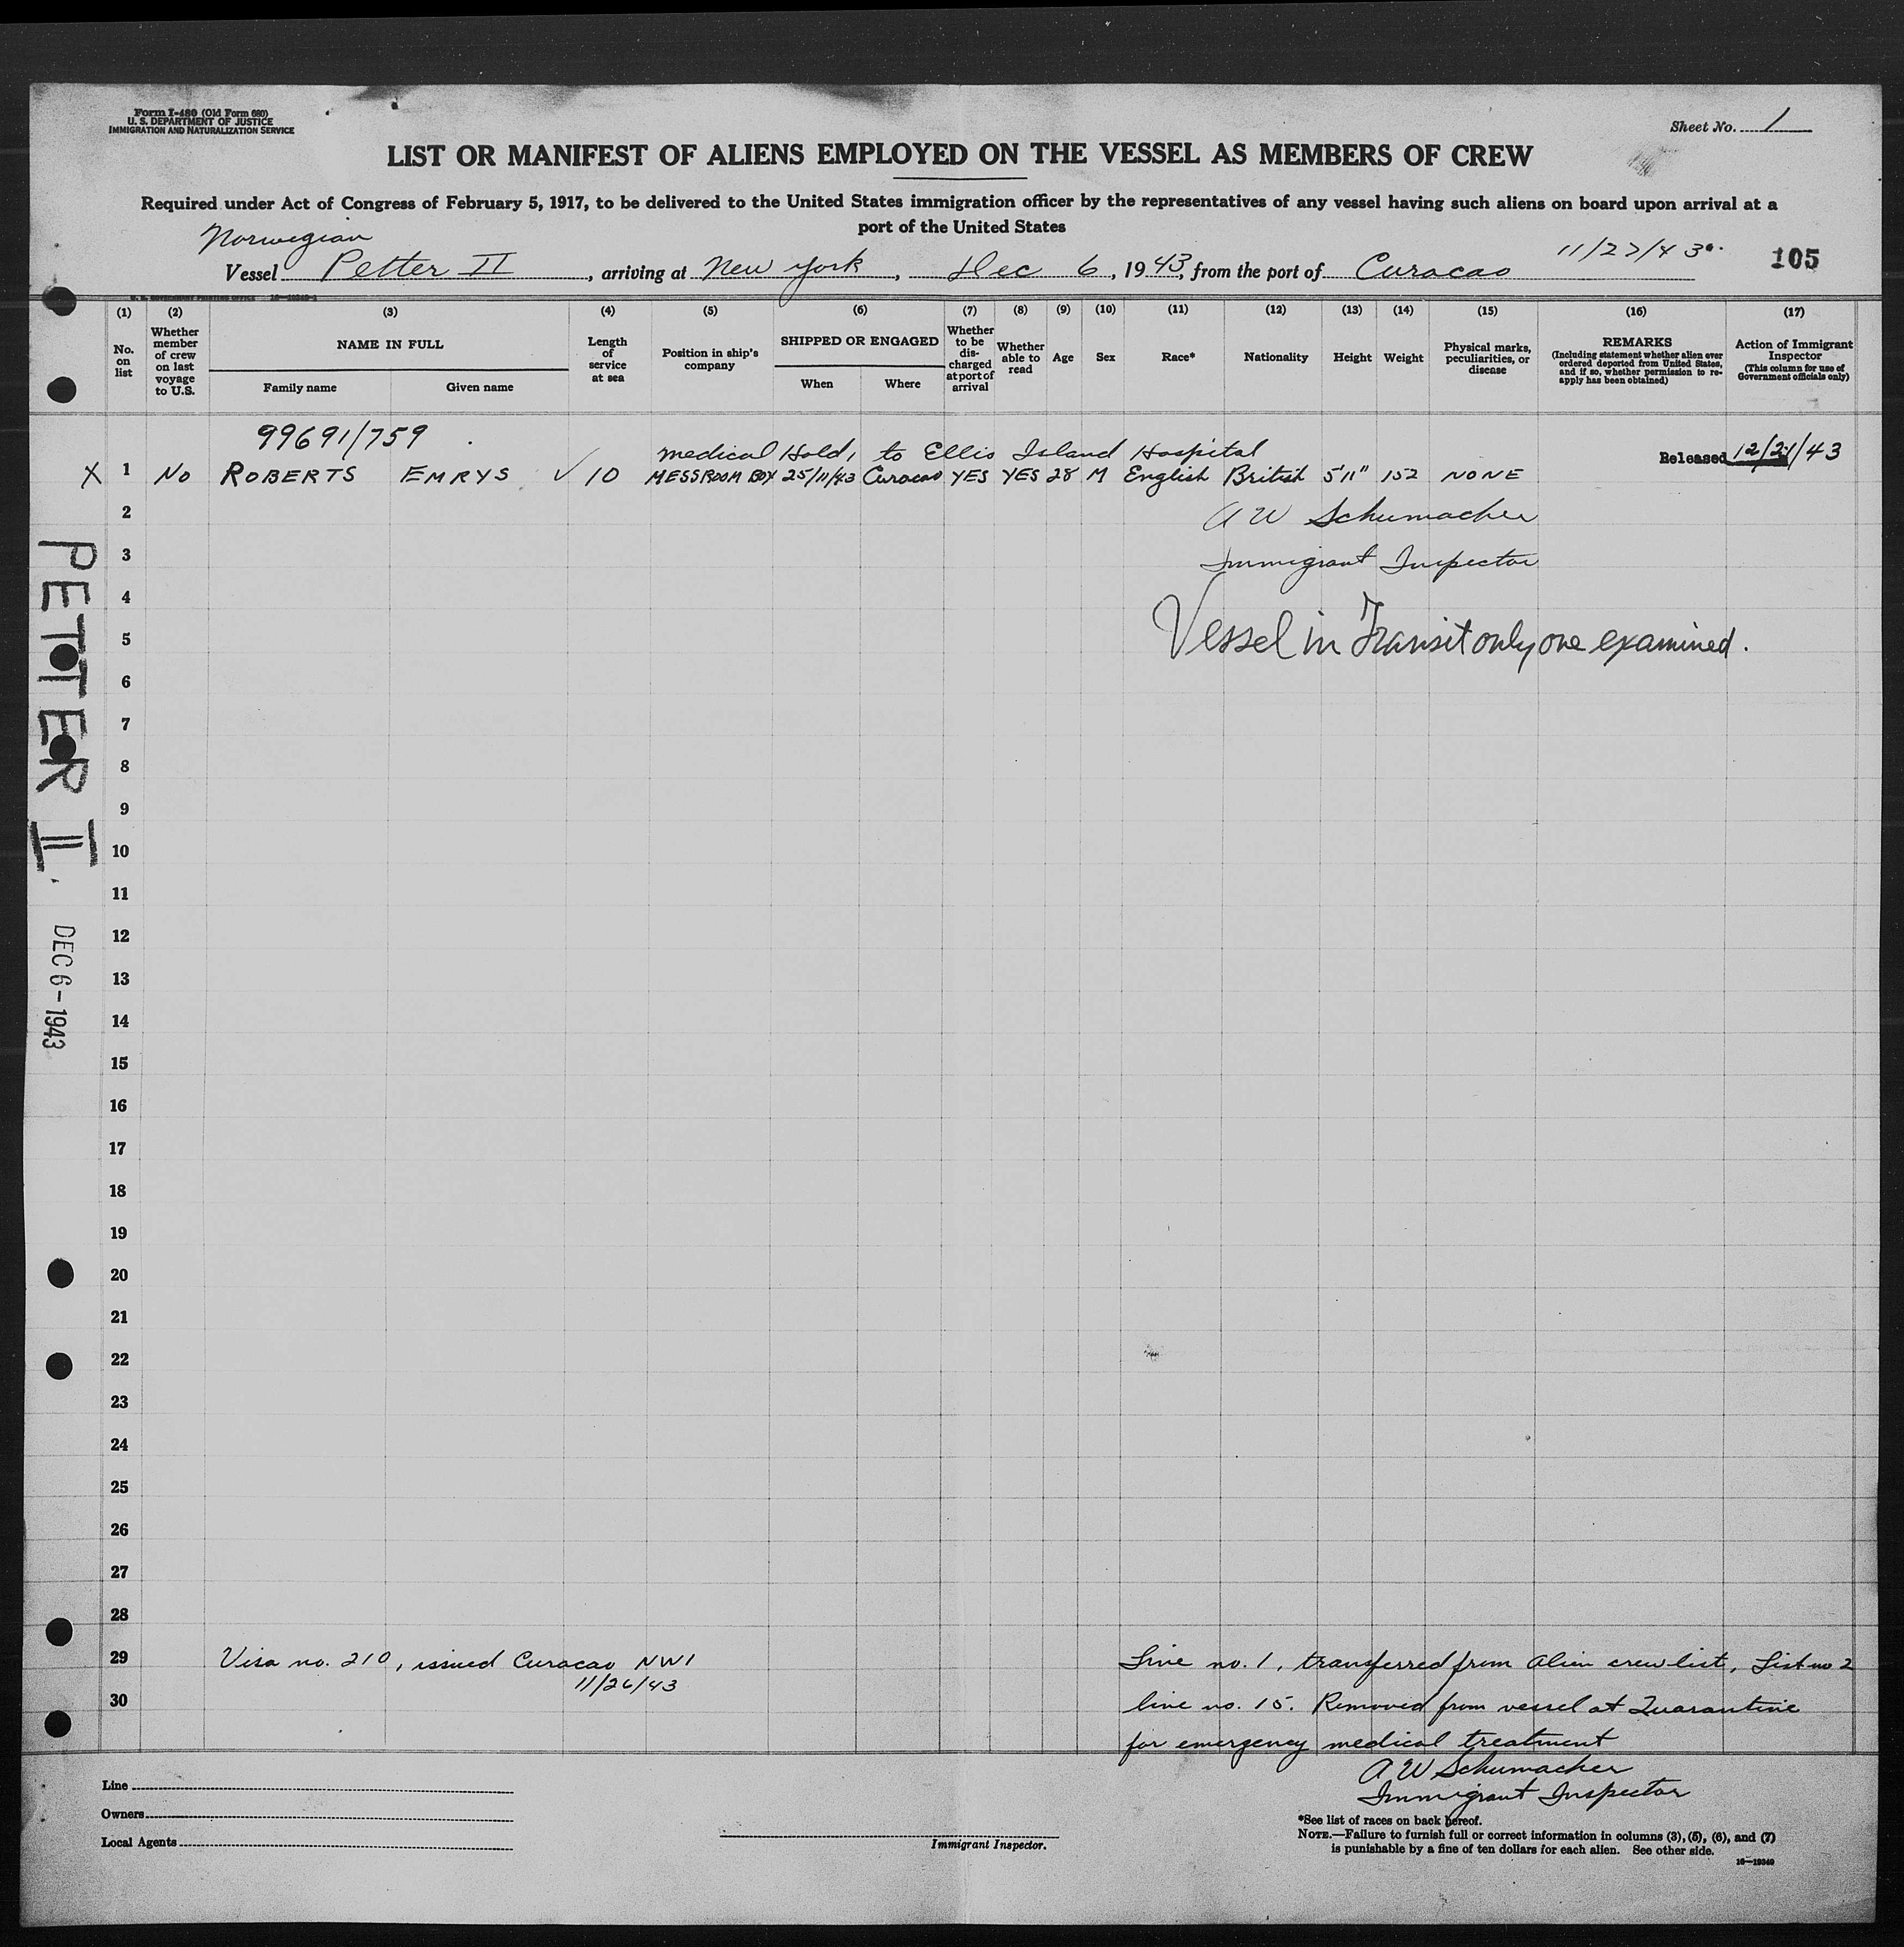 Form I-480 (Old Form 680)
U. S. DEPARTMENT OF JUSTICE
IMMIGRATION AND NATURALIZATION SERVICE
Sheet No. 1
LIST OR MANIFEST OF ALIENS EMPLOYED ON THE VESSEL AS MEMBERS OF CREW
Required under Act of Congress of February 5, 1917, to be delivered to the United States immigration officer by the representatives of any vessel having such aliens on board upon arrival at a
port of the United States
Norwegian
11/27/43
105
Vessel Petter II, arriving at New York, Dec 6, 1943, from the port of Curacao
(1) (2) (3) (4) (5) (6) (7) (8) (9) (10) (11) (12) (13) (14) (15) (16) (17)
No. on list
Whether member of crew on last voyage to U.S.
NAME IN FULL
Family name
Given name
Length of service at sea
Position in ship's company
SHIPPED OR ENGAGED
When
Where
Whether to be discharged at port of arrival
Whether able to read
Age
Sex
Race*
Nationality
Height
Weight
Physical marks, peculiarities, or disease
REMARKS
(Including statement whether alien ever ordered deported from United States, and if so, whether permission to reapply has been obtained)
Action of Immigrant Inspector
(This column for use of Government officials only)
99691/759
medical Hold, to Ellis Island Hospital
Released 12/21/43
X 1 No ROBERTS EMRYS ✓ 10 MESSROOM BOY 25/11/43 Curacao YES YES 28 M English British 5'11" 152 NONE
2 A W Schumacher
3 Immigrant Inspector
4
5 Vessel in Transit only one examined.
6
7
8
9
10
11
12
13
14
15
16
17
18
19
20
21
22
23
24
25
26
27
28
29 Visa no. 210, issued Curacao NWI Line no. 1, transferred from Alien crew list, List no 2
11/26/43
30 line no. 15. Removed from vessel at Quarantine
for emergency medical treatment
A W Schumacher
Immigrant Inspector
PETTER II.
DEC 6-1943
Line
Owners
Local Agents
Immigrant Inspector.
*See list of races on back hereof.
NOTE.—Failure to furnish full or correct information in columns (3), (5), (6), and (7)
is punishable by a fine of ten dollars for each alien. See other side.
16—19340